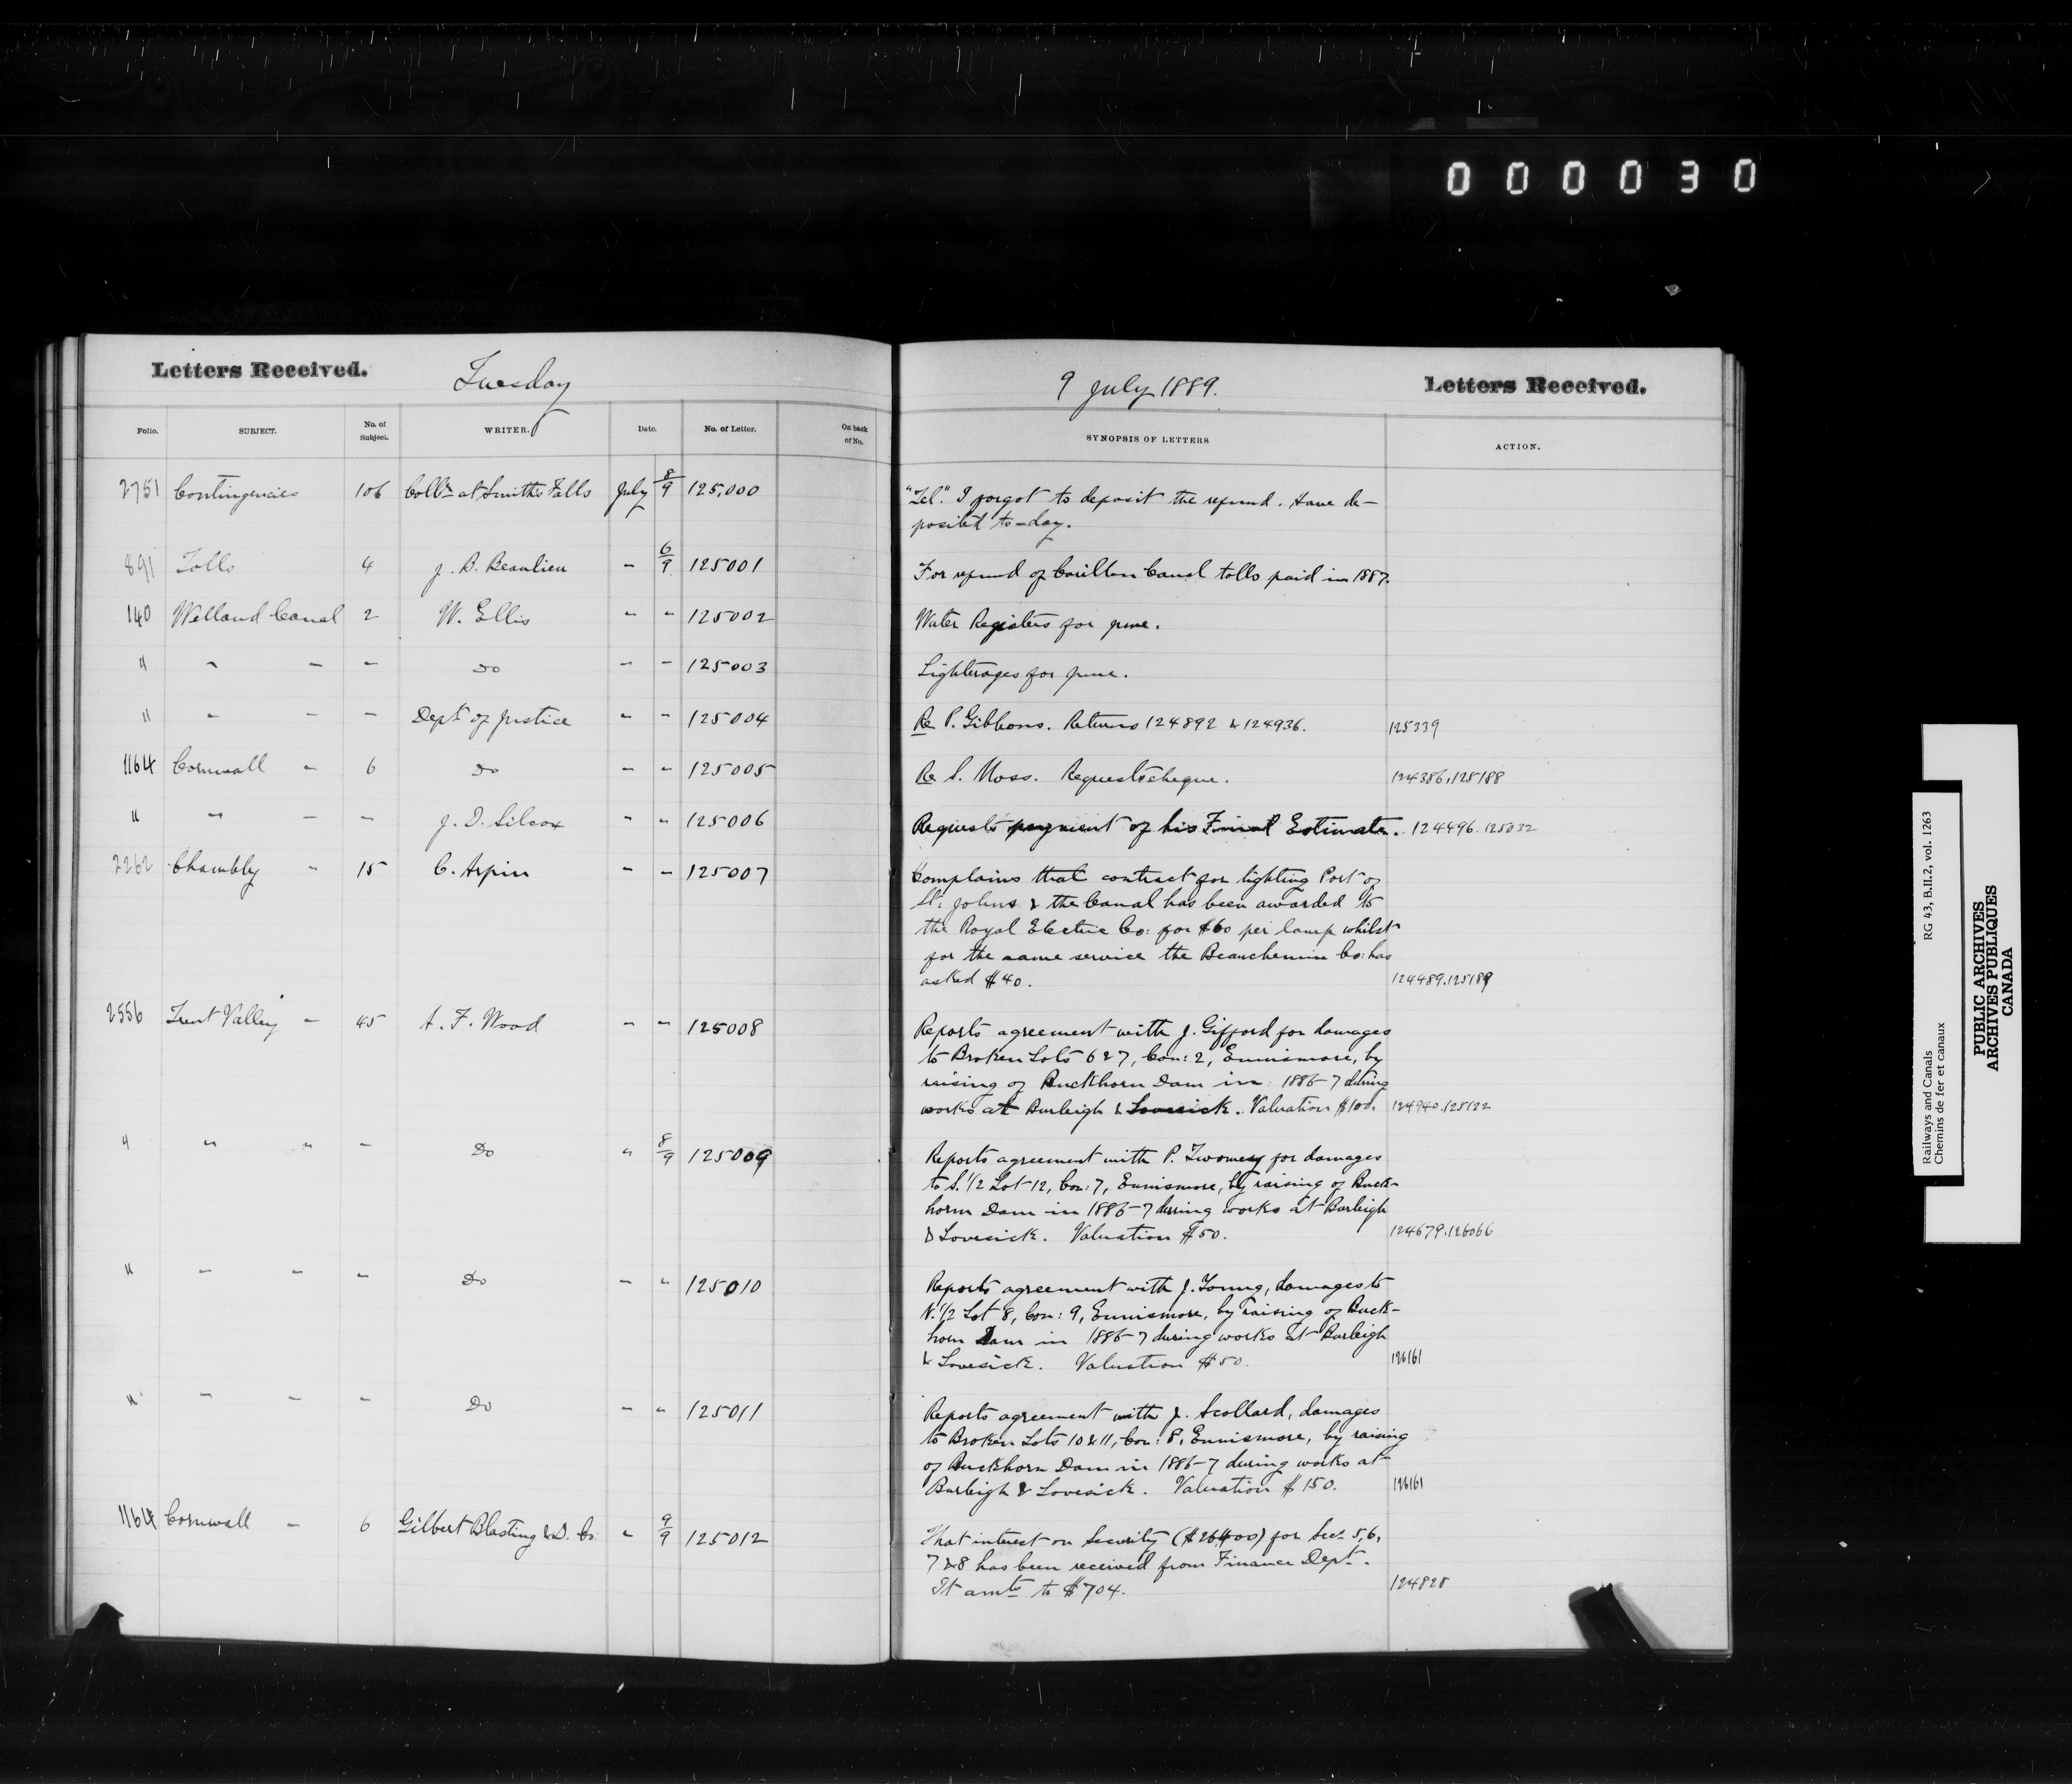 000030
Letters Received. Tuesday 9 July 1889. Letters Received.
Folio. SUBJECT. No. of Subject. WRITER. Date. No. of Letter. On back of No. SYNOPSIS OF LETTERS ACTION.
2751 Contingencies 106 Collr. at Smiths Falls July 8/9 125,000 "Tel." I forgot to deposit the refund. Have de-
posited to-day.
891 Tolls 4 J. B. Beaulieu - 6/9 125001 For refund of Carillon Canal tolls paid in 1887.
140 Welland Canal 2 W. Ellis - - 125002 Water Registers for June.
" - - - Do - - 125003 Lighterages for June.
" - - - Dept. of Justice - - 125004 Re P. Gibbons. Returns 124892 & 124936. 125339
1164 Cornwall - 6 Do - - 125005 Re S. Moss. Requests cheque. 124386.125188
" - - - J. D. Silcox - - 125006 Requests payment of his Final Estimate. 124496.125032
2262 Chambly - 15 C. Arpin - - 125007 Complains that contract for lighting Port of
St. Johns & the Canal has been awarded to
the Royal Electric Co: for $60 per lamp whilst
for the same service the Beauchemin Co: has
asked $40. 124489.125189
2556 Trent Valley - 45 A. F. Wood - - 125008 Reports agreement with J. Gifford for damages
to Broken Lots 6 & 7, Con: 2, Ennismore, by
raising of Buckhorn Dam in 1886-7 during
works at Burleigh & Lovesick. Valuation $100. 124940.125122
" " " - Do " 8/9 125009 Reports agreement with P. Twomey for damages
to S. 1/2 Lot 12, Con: 7, Ennismore, by raising of Buck-
horn Dam in 1886-7 during works at Burleigh
& Lovesick. Valuation $50. 124679.126066
" - - - Do - " 125010 Reports agreement with J. Young, damages to
N. 1/2 Lot 8, Con: 9, Ennismore, by raising of Buck-
horn Dam in 1886-7 during works at Burleigh
& Lovesick. Valuation $50. 126161
" - - - Do - " 125011 Reports agreement with J. Scollard, damages
to Broken Lots 10 & 11, Con: 8, Ennismore, by raising
of Buckhorn Dam in 1886-7 during works at
Burleigh & Lovesick. Valuation $150. 126161
1164 Cornwall - 6 Gilbert Blasting & D. Co. " 9/9 125012 That interest on Security ($26400) for Secs. 5, 6,
7 & 8 has been received from Finance Dept.
It amts. to $704. 124828
Railways and Canals RG 43, B.II.2, vol. 1263
Chemins de fer et canaux
PUBLIC ARCHIVES
ARCHIVES PUBLIQUES
CANADA